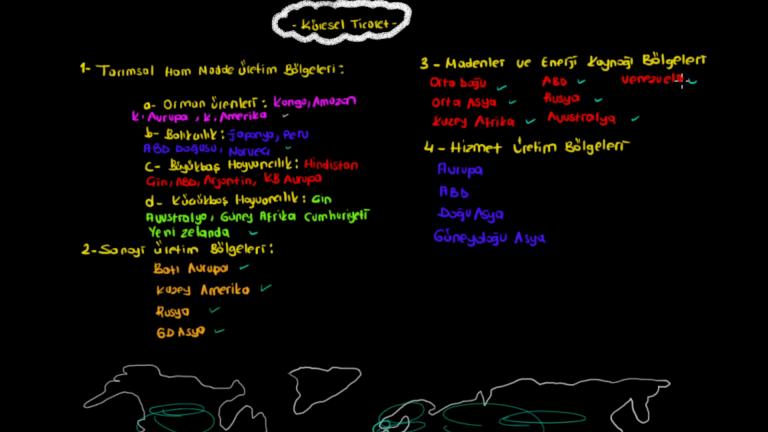 - Küresel Ticaret -
1- Tarımsal Ham Madde Üretim Bölgeleri :
a- Orman ürenleri : Kongo, Amazon
K. Avrupa , K. Amerika
b- Balıkçılık : Japonya, Peru
ABD Doğusu, Norveç
c- Büyükbaş Hayvancılık : Hindistan
Çin, ABD, Arjantin, KB Avrupa
d- Küçükbaş Hayvancılık : Çin
Avustralya, Güney Afrika Cumhuriyeti
Yeni Zelanda
2- Sanayi Üretim Bölgeleri :
Batı Avrupa
Kuzey Amerika
Rusya
GD Asya
3- Madenler ve Enerji Kaynağı Bölgeleri
Orta Doğu ABD Venezuela
Orta Asya Rusya
Kuzey Afrika Avustralya
4- Hizmet Üretim Bölgeleri
Avrupa
ABD
Doğu Asya
Güneydoğu Asya